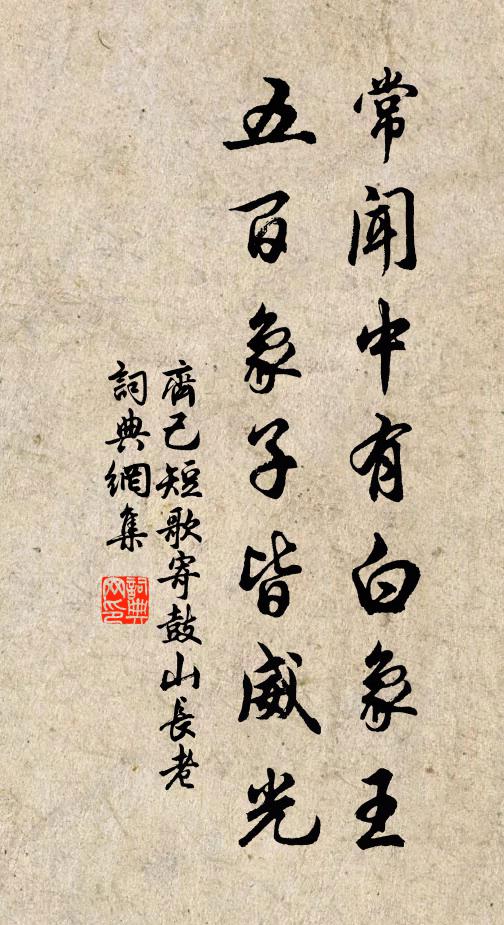 常聞中有白象王
五百象子皆威光
齊己短歌寄鼓山長老
詞典網集
詞典
网印